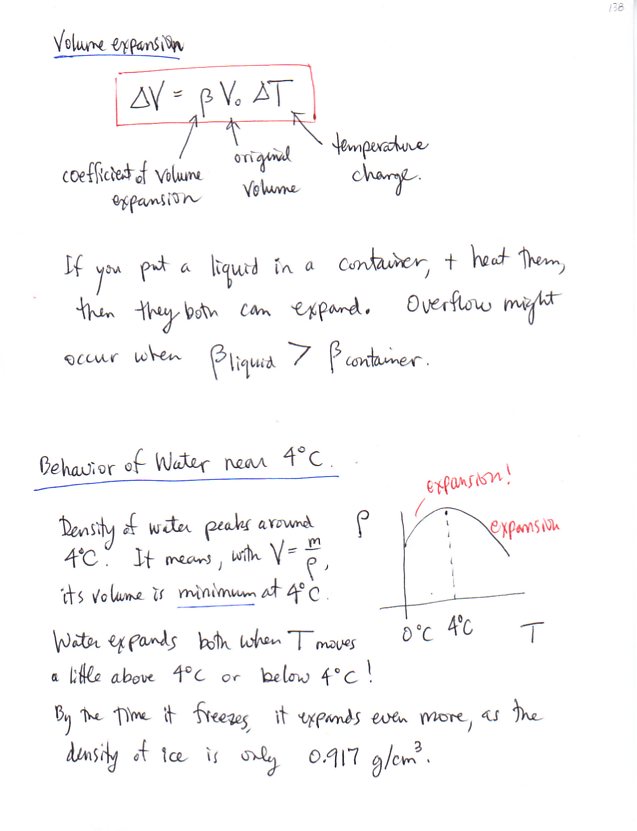 138
Volume expansion
ΔV = β V₀ ΔT
coefficient of volume
expansion
original
volume
temperature
change.
If you put a liquid in a container, + heat them,
then they both can expand. Overflow might
occur when β liquid > β container.
Behavior of Water near 4°C.
Density of water peaks around
4°C. It means, with V = m/ρ,
its volume is minimum at 4°C.
ρ
expansion!
expansion
0°C 4°C T
Water expands both when T moves
a little above 4°C or below 4°C!
By the time it freezes, it expands even more, as the
density of ice is only 0.917 g/cm³.